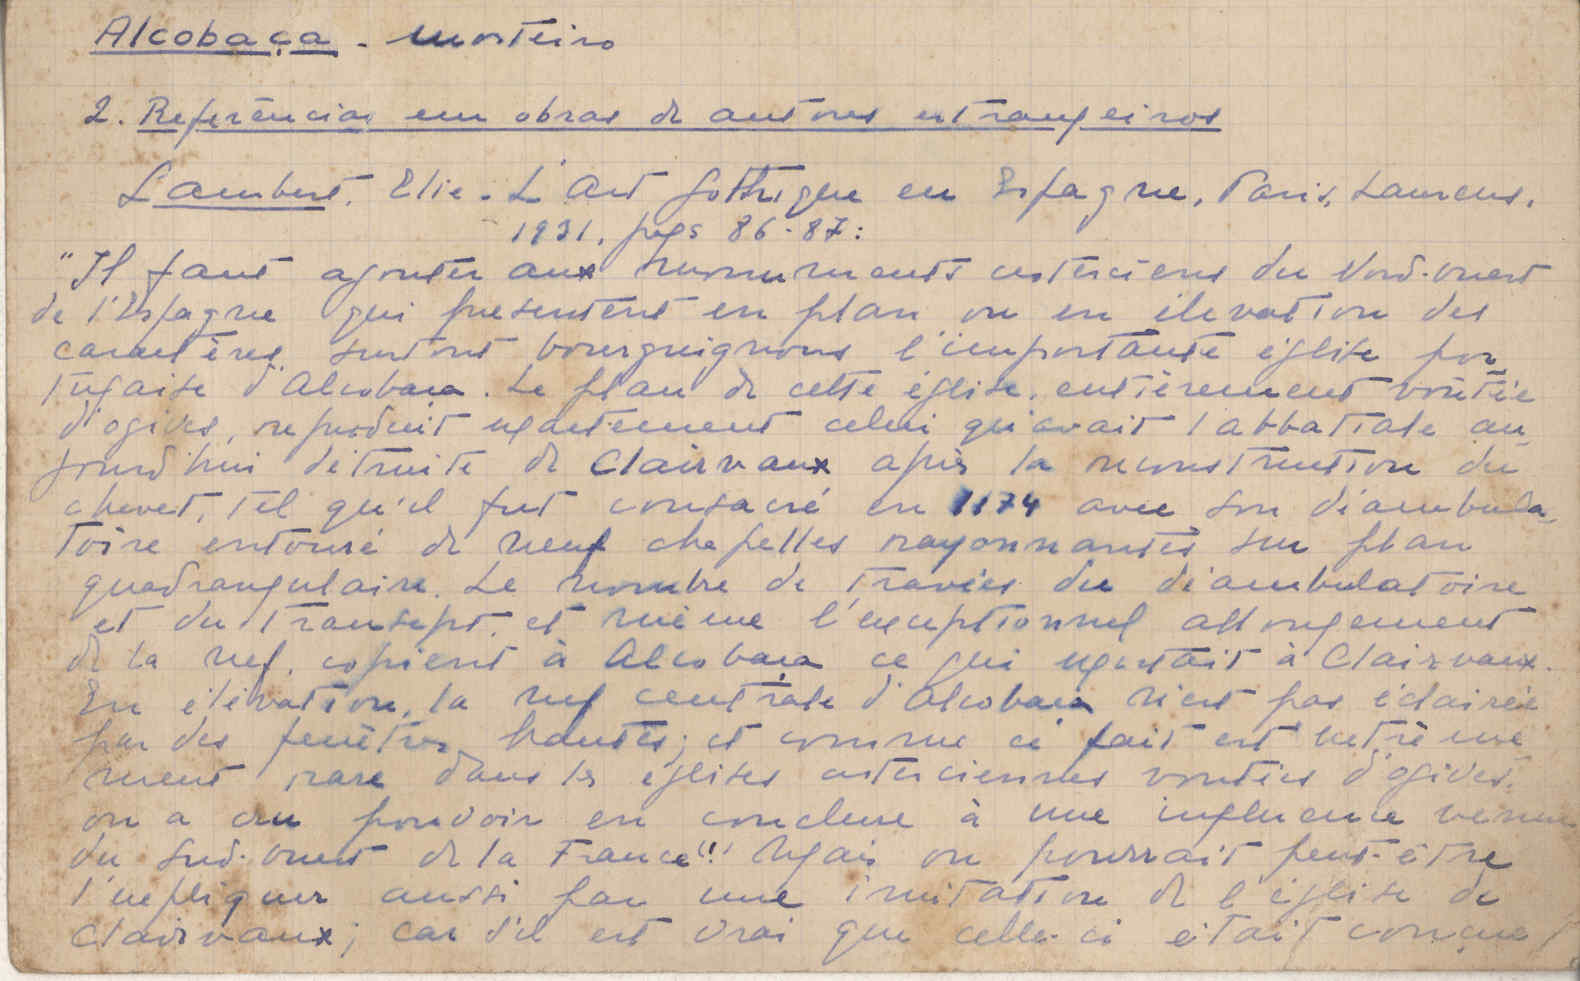 Alcobaça - Mosteiro
2. Referências em obras de autores estrangeiros
Lambert, Elie - L'Art Gothique en Espagne, Paris, Laurens,
1931, pags 86-87:
"Il faut ajouter aux monuments cisterciens du Nord-ouest
de l'Espagne qui présentent en plan ou en élevation des
caractères surtout bourguignons l'importante église por
tugaise d'Alcobaça. Le plan de cette église, entièrement voûtée
d'ogives, reproduit exactement celui qu'avait l'abbatiale au-
jourd'hui détruite de Clairvaux après la reconstruction du
chevet, tel qu'il fut consacré en 1174 avec son déambula-
toire entouré de neuf chapelles rayonnantes sur plan
quadrangulaire. Le nombre de travées du déambulatoire
et du transept, et même l'exceptionnel allongement
de la nef, copient à Alcobaça ce qui existait à Clairvaux.
En élévation, la nef centrale d'Alcobaça n'est pas éclairée
par des fenêtres hautes; et comme ce fait est extrême
ment rare dans les églises cisterciennes voutées d'ogives,
on a cru pouvoir en conclure à une influence venue
du sud-ouest de la France(1) Mais on pourrait peut-être
l'expliquer aussi par une imitation de l'église de
Clairvaux; car s'il est vrai que celle-ci était conçue